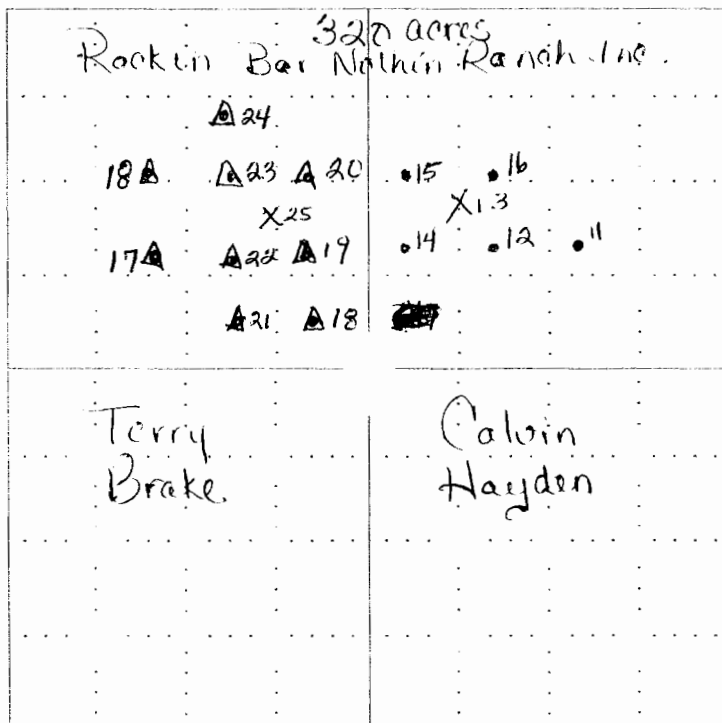 320 acres
Rockin Bar Nothin Ranch Inc.
24
18 23 20 15 16
25 13
17 22 19 14 12 11
21 18
Terry
Brake
Calvin
Hayden